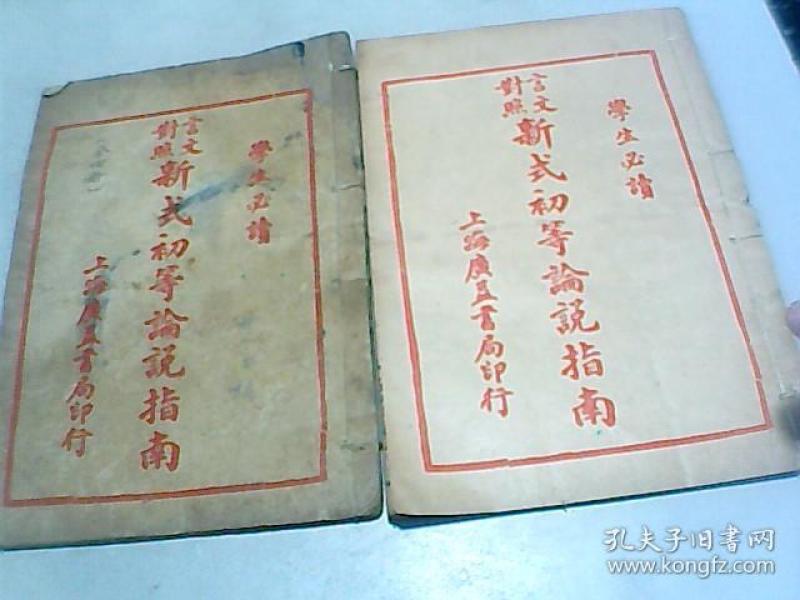 學生必讀
言文對照
新式初等論說指南
上海廣益書局印行
學生必讀
言文對照
新式初等論說指南
上海廣益書局印行
孔夫子旧书网
www.kongfz.com